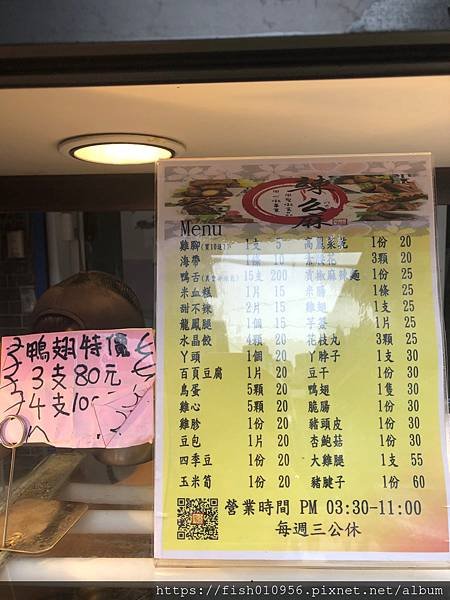 鴨翅特價
3支80元
4支10
Menu
雞腳(買10送1) 1支 5
海帶 1條 10
鴨舌 15支 200
米血糕 1片 15
甜不辣 1片 20
龍鳳腿 1個 15
水晶餃 4顆 20
丫頭 1個 20
百頁豆腐 1片 20
鳥蛋 5顆 20
雞心 5顆 20
雞胗 1份 20
豆包 1片 20
四季豆 1份 20
玉米筍 1份 20
高麗菜乾 1份 20
3顆 20
麻辣麵 1份 25
米腸 1條 25
雞翅 1支 25
1片 25
花枝丸 3顆 25
丫脖子 1支 30
豆干 1份 30
鴨翅 1隻 30
脆腸 1份 30
豬頭皮 1份 30
杏鮑菇 1份 30
大雞腿 1支 55
豬腱子 1份 60
營業時間 PM 03:30-11:00
每週三公休
https://fish010956.pixnet.net/album